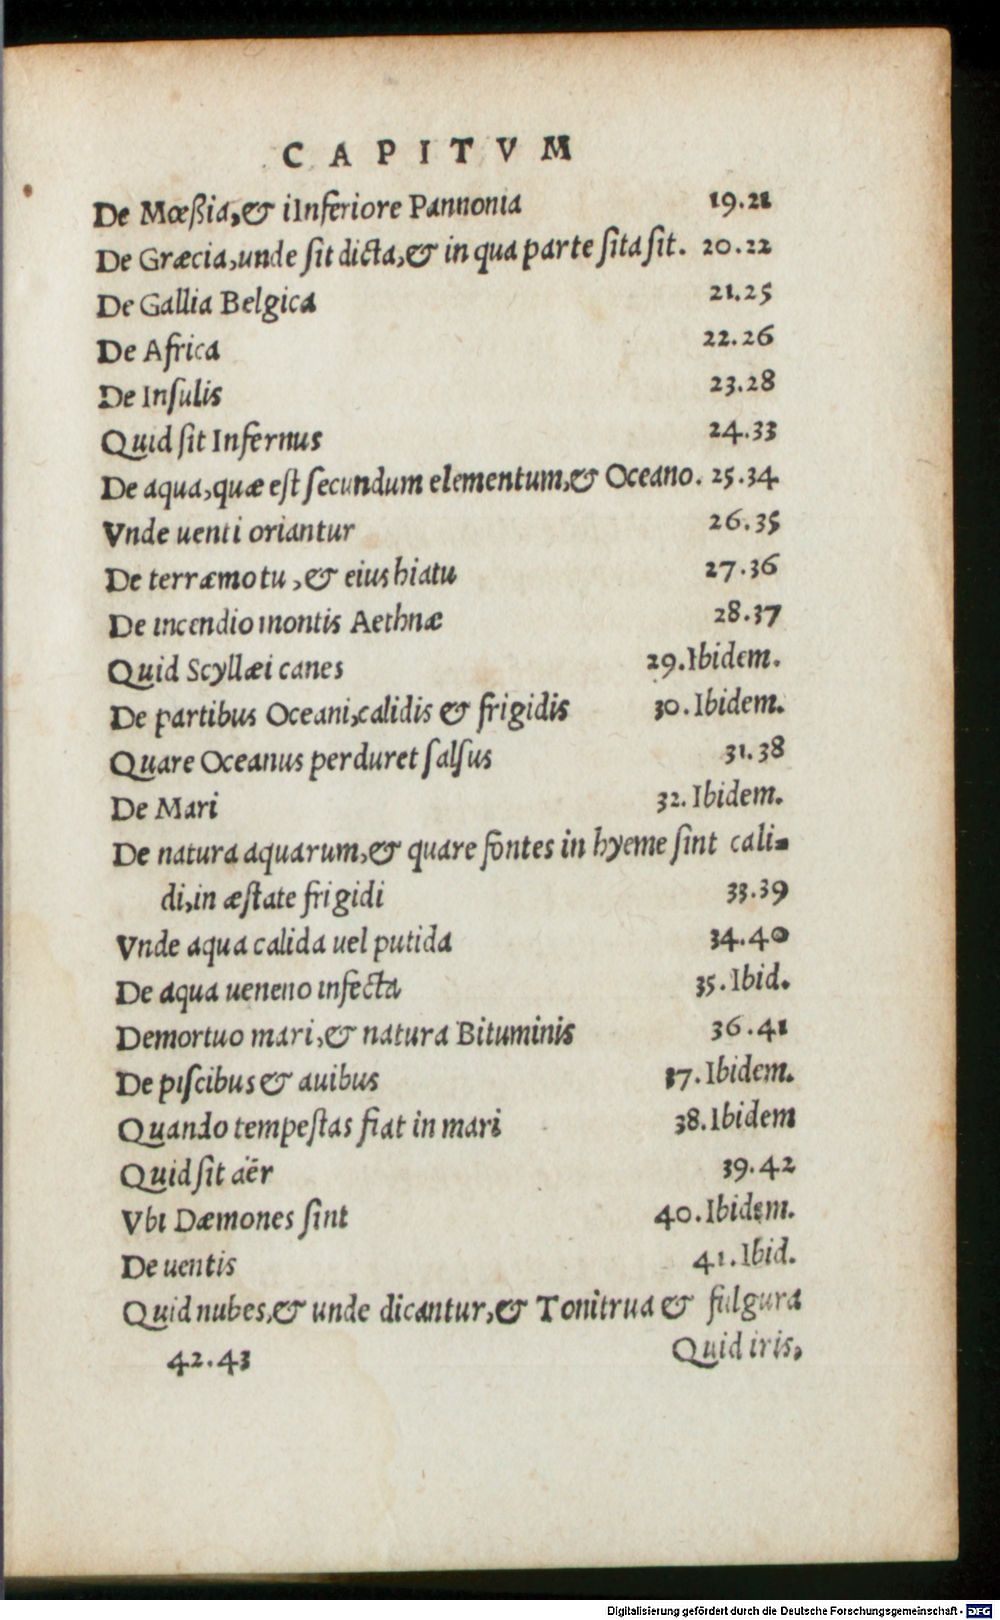 CAPITVM
De Mœßia, & iInferiore Pannonia 19.21
De Græcia, unde ſit dicta, & in qua parte ſita ſit. 20.22
De Gallia Belgica 21.25
De Africa 22.26
De Inſulis 23.28
Quid ſit Infernus 24.33
De aqua, quæ eſt ſecundum elementum, & Oceano. 25.34
Vnde uenti oriantur 26.35
De terræmotu, & eius hiatu 27.36
De incendio montis Aethnæ 28.37
Quid Scyllæi canes 29. Ibidem.
De partibus Oceani, calidis & frigidis 30. Ibidem.
Quare Oceanus perduret ſalſus 31.38
De Mari 32. Ibidem.
De natura aquarum, & quare fontes in hyeme ſint cali-
di, in æſtate frigidi 33.39
Vnde aqua calida uel putida 34.40
De aqua ueneno infecta 35. Ibid.
Demortuo mari, & natura Bituminis 36.41
De piſcibus & auibus 37. Ibidem.
Quando tempeſtas fiat in mari 38. Ibidem
Quid ſit aër 39.42
Vbi Dæmones ſint 40. Ibidem.
De uentis 41. Ibid.
Quid nubes, & unde dicantur, & Tonitrua & fulgura
42.43 Quid iris,
Digitalisierung gefördert durch die Deutsche Forschungsgemeinschaft - DFG